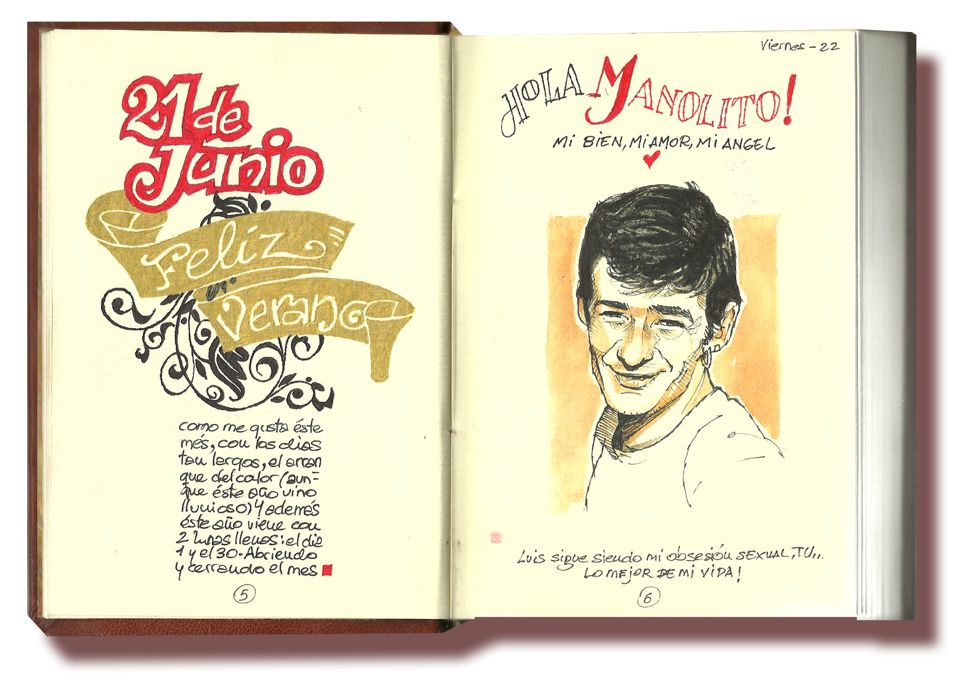 21 de
Junio
Feliz
Verano
como me gusta éste
més, con los dias
tan largos, el arran
que del calor (aun-
que éste año vino
lluvioso) Y además
éste año viene con
2 lunas llenas: el die
1 y el 30. Abriendo
y cerrando el mes
5
Viernes - 22
HOLA MANOLITO!
Mi BIEN, Mi AMOR, Mi ANGEL
Luis sigue siendo mi obsesión SEXUAL, TU...
Lo mejor DE Mi VIDA!
6